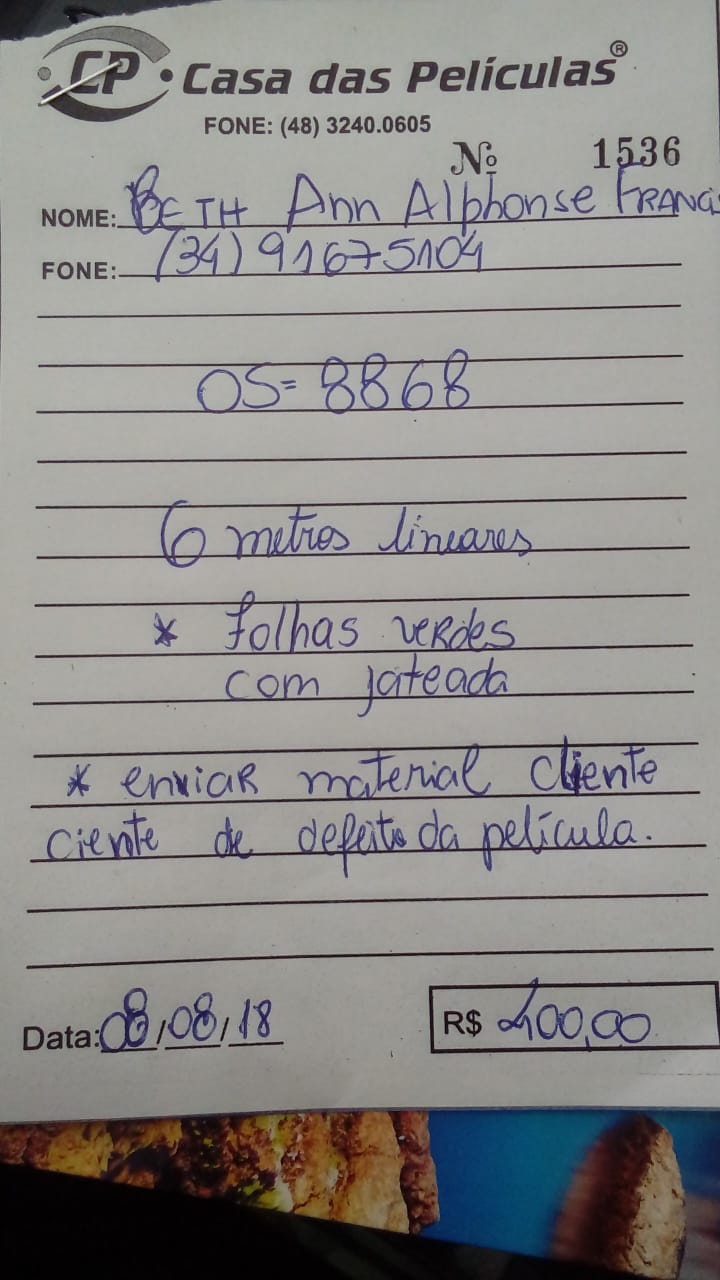 CP • Casa das Películas®
FONE: (48) 3240.0605
Nº 1536
NOME: BETH Ann Alphonse FRANCIS
FONE: (34) 91675104
OS= 8868
6 metros lineares
* folhas verdes
com jateada
* enviar material cliente
ciente de defeito da película.
Data: 08/08/18 R$ 400,00